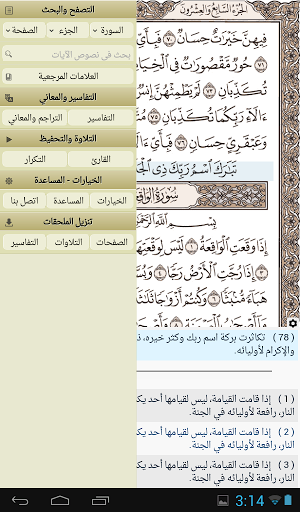 التصفح والبحث
السورة
الجزء
الصفحة
بحث في نصوص الآيات
العلامات المرجعية
التفاسير والمعاني
التفاسير
التراجم والمعاني
التلاوة والتحفيظ
القارئ
التكرار
الخيارات - المساعدة
الخيارات
المساعدة
اتصل بنا
تنزيل الملحقات
الصفحات
التلاوات
التفاسير
الجزء السابع والعشرون
فيهن خيرات حسان ٧٠ فبأي
حور مقصورات في الخيا
تكذبان ٧٣ لم يطمثهن إنس
ءالاء ربكما تكذبان ٧٥
وعبقري حسان ٧٦ فبأي ءا
تبارك اسم ربك ذي الج
سورة الواقعة
بسم الله الرحمن
إذا وقعت الواقعة ١ ليس لوقعتها
٣ إذا رجت الأرض رجا ٤ وبس
هباء منبثا ٦ وكنتم أزواجا ثلاثة
( 78 ) تكاثرت بركة اسم ربك وكثر خيره، ذ
والإكرام لأوليائه.
( 1 ) إذا قامت القيامة، ليس لقيامها أحد يك
النار، رافعة لأوليائه في الجنة.
( 2 ) إذا قامت القيامة، ليس لقيامها أحد يك
النار، رافعة لأوليائه في الجنة.
( 3 ) إذا قامت القيامة، ليس لقيامها أحد يك
النار، رافعة لأوليائه في الجنة.
3:14